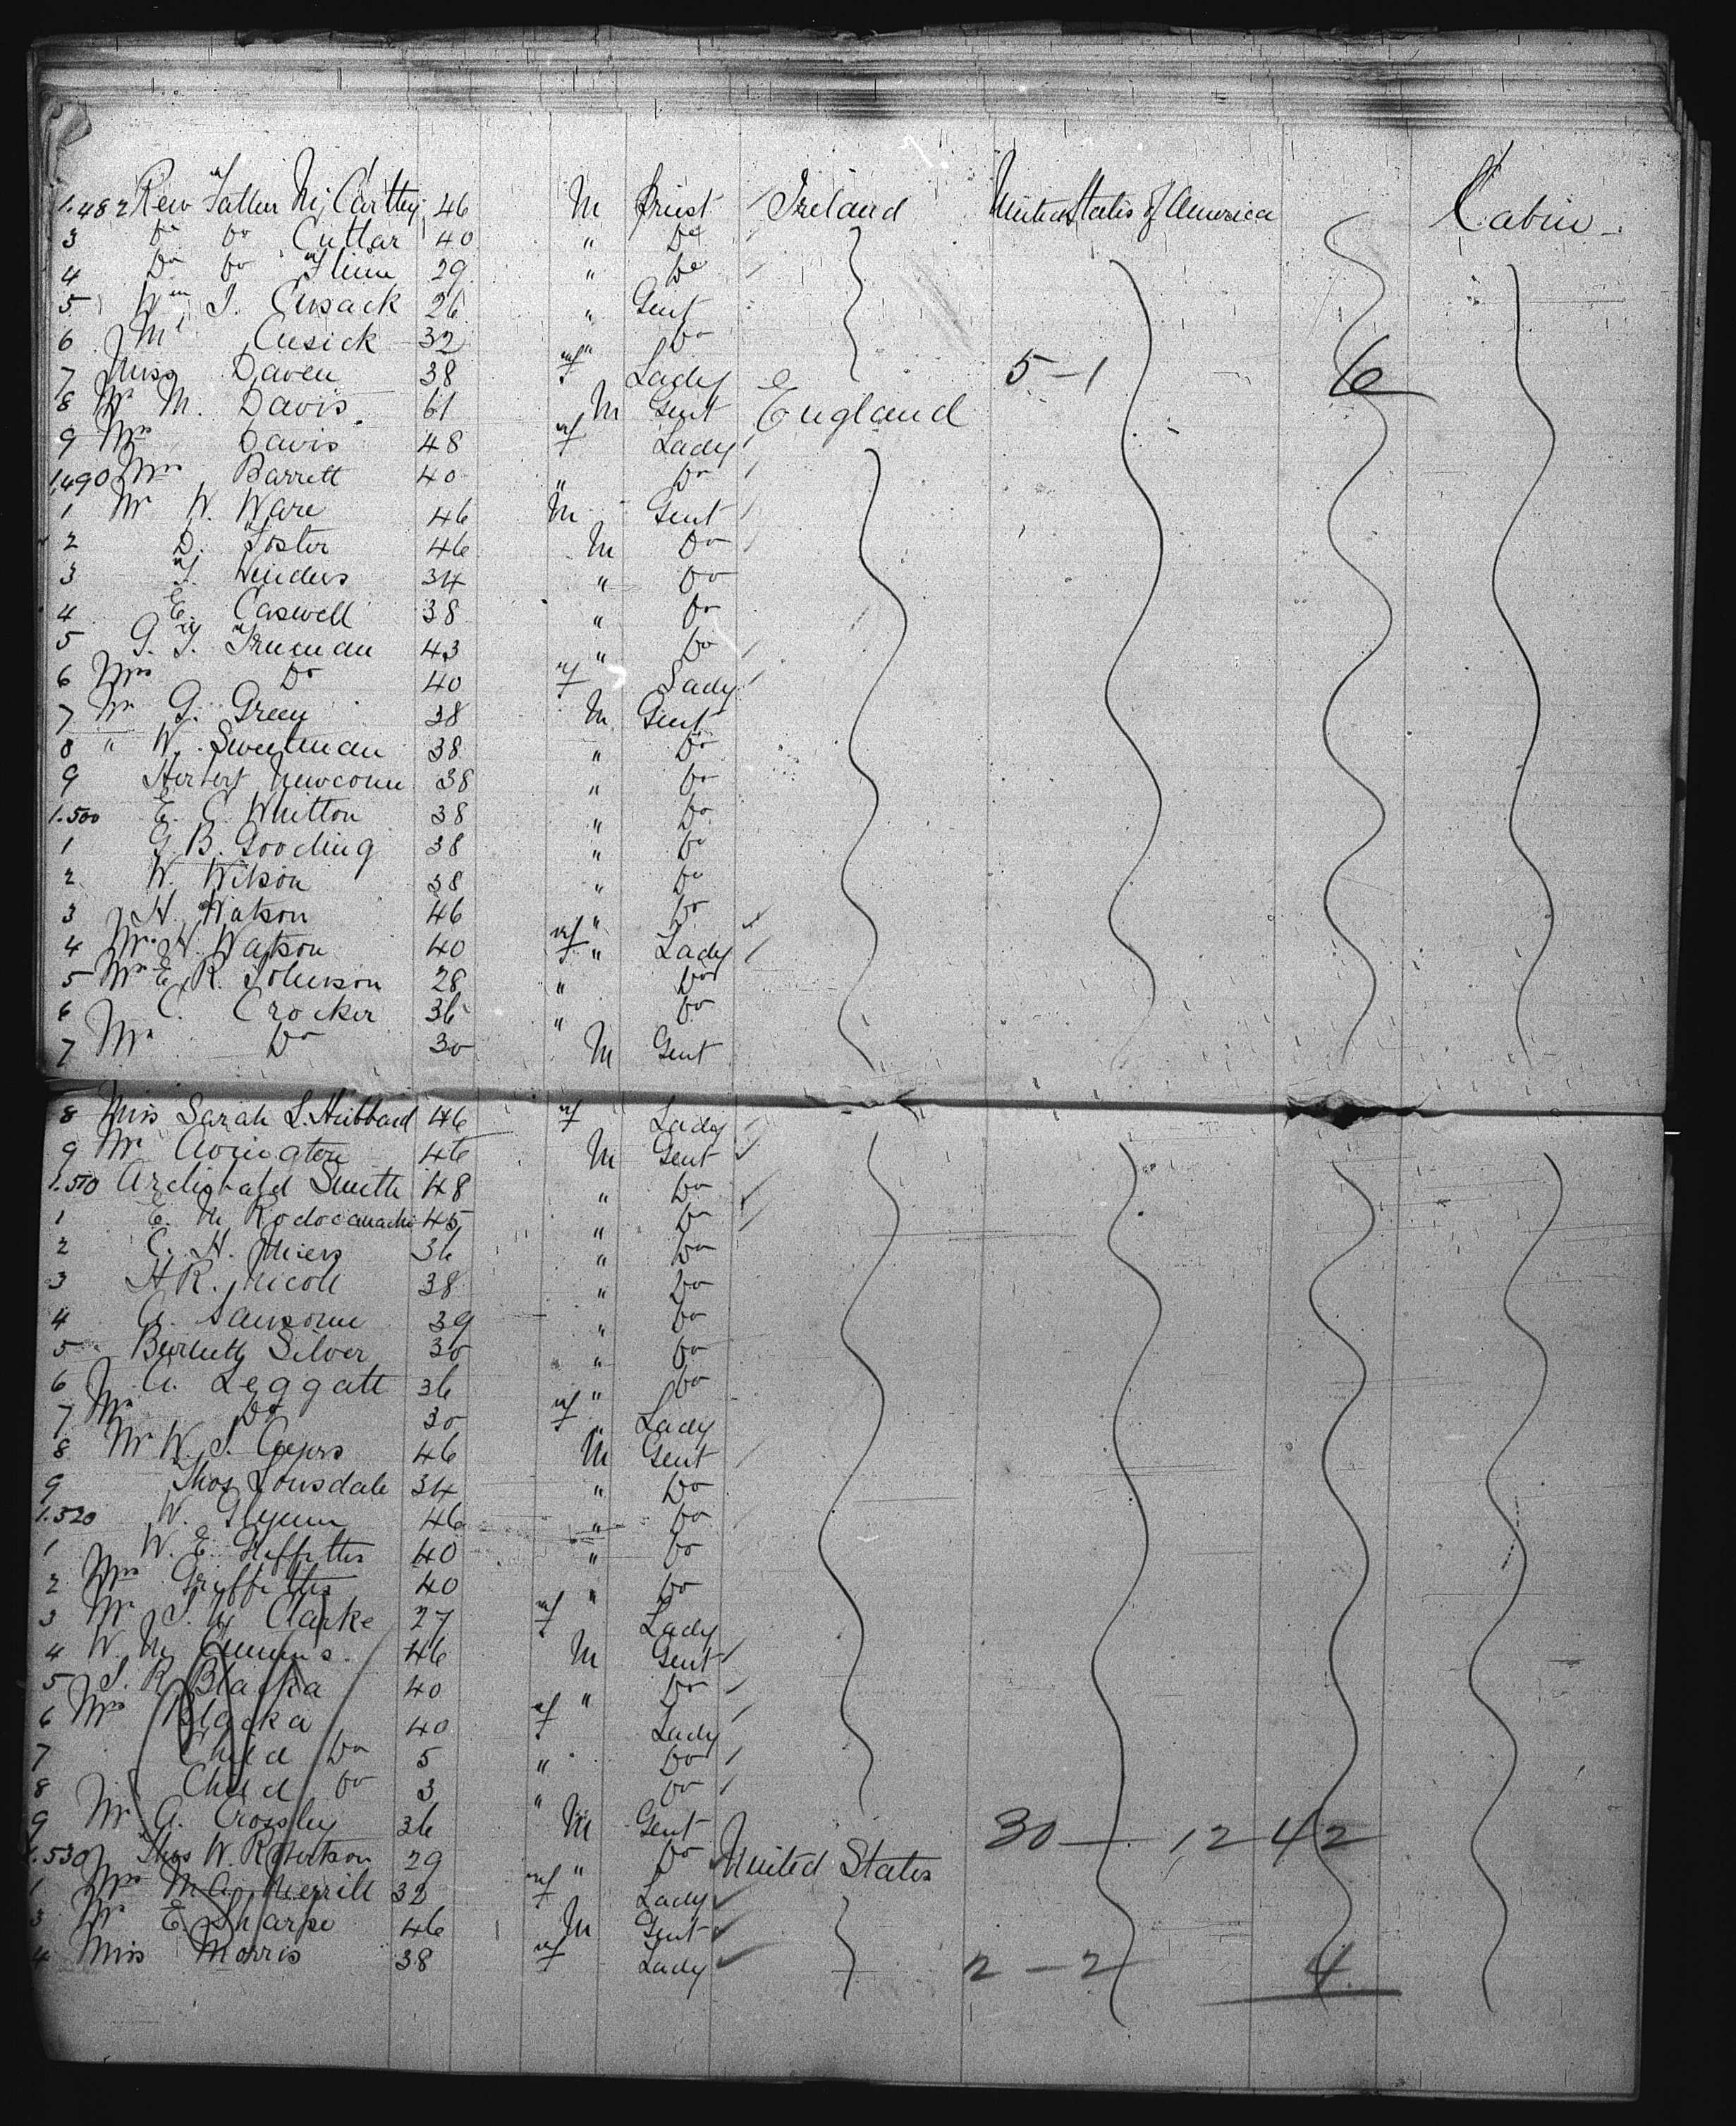 1.482 Rev Father McCarthy 46 M Priest Ireland United States of America Cabin
3 Do Do Cuttar 40 " Do
4 Do Do Flinn 29 " Do
5 Wm J. Cusack 26 " Gent
6 Mr Cusick 32 " Do
7 Miss Daven 38 f Lady 5 - 1 6
8 Mr M. Davis 61 M Gent England
9 Mrs Davis 48 f Lady
1490 Mrs Barrett 40 " Do
1 Mr W. Ware 46 M Gent
2 D. Foster 46 M Do
3 F. Winders 34 " Do
4 E. Caswell 38 " Do
5 G. F. Trueman 43 " Do
6 Mrs Do 40 f Lady
7 Mr G. Green 38 M Gent
8 " W. Sweetman 38 " Do
9 Herbert Newcome 38 " Do
1.500 E. C. Whitton 38 " Do
1 G. B. Gooding 38 " Do
2 W. Wilson 38 " Do
3 H. Watson 46 " Do
4 Mrs H. Watson 40 f " Lady
5 Mrs E. R. Johnson 28 " Do
6 C. Crocker 36 " Do
7 Mr Do 30 M Gent
8 Miss Sarah L. Hubbard 46 f Lady
9 Mr 46 M Gent
1.510 Archibald Smith 48 " Do
1 E. M. Rodocanachi 45 " Do
2 C. H. Miers 36 " Do
3 H. R. Nicoll 38 " Do
4 A. Sansome 39 " Do
5 Silver 30 " Do
6 A. Leggatt 36 " Do
7 Mrs Do 30 f " Lady
8 Mr W. J. 46 M Gent
9 Thos Lonsdale 34 " Do
1.520 W. Glynn 46 " Do
1 W. E. Griffiths 40 " Do
2 Mrs Griffiths 40 " Do
3 Mr J. H. Clarke 27 f Lady
4 W. M. 46 M Gent
5 J. R. Blacka 40 " Do
6 Mrs Blacka 40 f Lady
7 Child Do 5 " Do
8 Child Do 3 " Do
9 Mr A. Crossley 36 M Gent 30 - 12 42
1.530 Thos W. Robertson 29 " Do United States
1 Mrs M. A. Merrill 32 f Lady
3 Mr E. Sharpe 46 M Gent
4 Miss Morris 38 f Lady 2 - 2 4